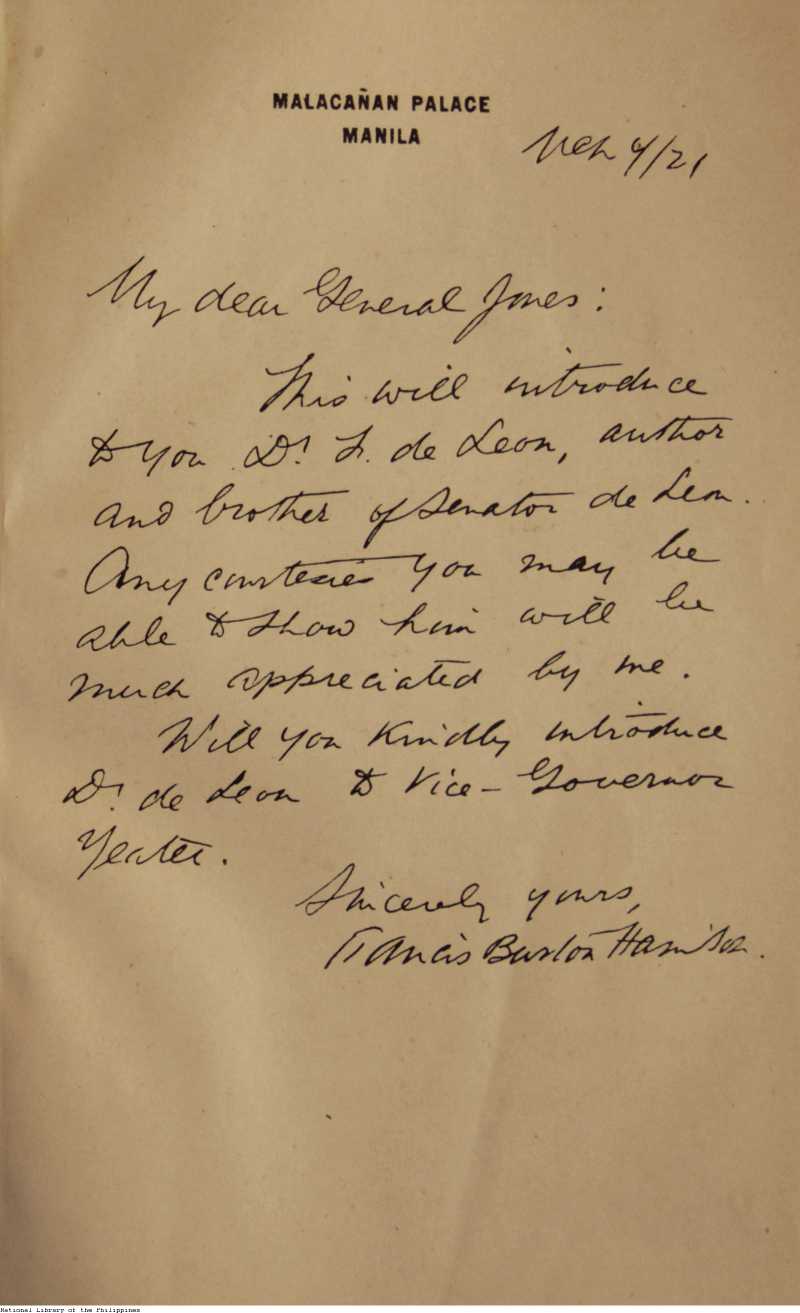 MALACAÑAN PALACE
MANILA
Mch 4/21
My dear General Jones:
This will introduce
to you Dr. F. de Leon, author
and brother of Senator de Leon.
Any courtesies you may be
able to show him will be
much appreciated by me.
Will you kindly introduce
Dr. de Leon to Vice-Governor
Yeater.
Sincerely yours,
Francis Burton Harrison.
National Library of the Philippines